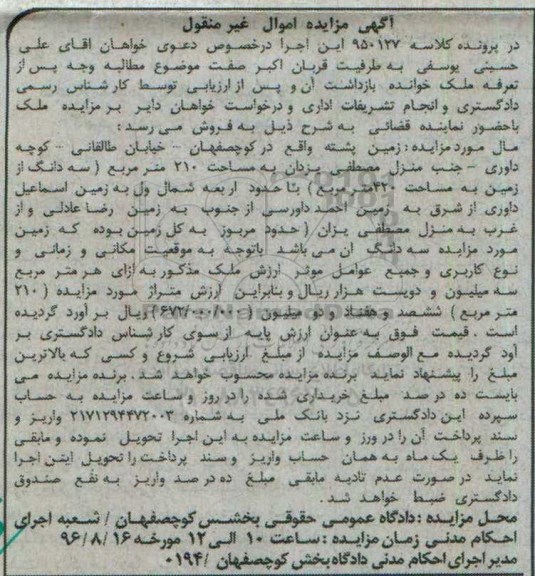 آگهی مزایده اموال غیر منقول
در پرونده کلاسه ۹۵۰۱۲۷ این اجرا درخصوص دعوی خواهان اقای علی
حسینی یوسفی به طرفیت قربان اکبر صفت موضوع مطالبه وجه پس از
تعرفه ملک خوانده بازداشت آن و پس از ارزیابی توسط کارشناس رسمی
دادگستری و انجام تشریفات اداری و درخواست خواهان دایر بر مزایده ملک
باحضور نماینده قضائی به شرح ذیل به فروش می رسد :
مال مورد مزایده : زمین پشته واقع در کوچصفهان - خیابان طالقانی - کوچه
داوری - جنب منزل مصطفی یزدان به مساحت ۲۱۰ متر مربع ( سه دانگ از
زمین به مساحت ۴۲۰ متر مربع ) با حدود اربعه شمال ول به زمین اسماعیل
داوری از شرق به زمین احمد داورسی از جنوب به زمین رضا عادلی و از
غرب به منزل مصطفی یزان ( حدود مربوز به کل زمین بوده که زمین
مورد مزایده سه دانگ آن می باشد باتوجه به موقعیت مکانی و زمانی و
نوع کاربری و جمیع عوامل موثر ارزش ملک مذکور به ازای هر متر مربع
سه میلیون و دویست هزار ریال و بنابراین ارزش متراژ مورد مزایده ( ۲۱۰
متر مربع ) ششصد و هفتاد و دو میلیون ریال بر آورد گردیده
است . قیمت فوق به عنوان ارزش پایه از سوی کارشناس دادگستری بر
آود گردیده مع الوصف مزایده از مبلغ ارزیابی شروع و کسی که بالاترین
مبلغ را پیشنهاد نماید برنده مزایده محسوب خواهد شد . برنده مزایده می
بایست ده در صد مبلغ خریداری شده را در روز و ساعت مزایده به حساب
سپرده این دادگستری نزد بانک ملی به شماره ۲۱۷۱۲۹۴۴۷۲۰۰۳ واریز و
سند پرداخت آن را در ورز و ساعت مزایده به این اجرا تحویل نموده و مابقی
را ظرف یک ماه به همان حساب واریز و سند پرداخت را تحویل ایتن اجرا
نماید در صورت عدم تادیه مابقی مبلغ ده در صد واریز به نفع صندوق
دادگستری ضبط خواهد شد .
محل مزایده : دادگاه عمومی حقوقی بخشس کوچصفهان / شعبه اجرای
احکام مدنی زمان مزایده : ساعت ۱۰ الی ۱۲ مورخه ۹۶/۸/۱۶
مدیر اجرای احکام مدنی دادگاه بخش کوچصفهان /۰۱۹۴